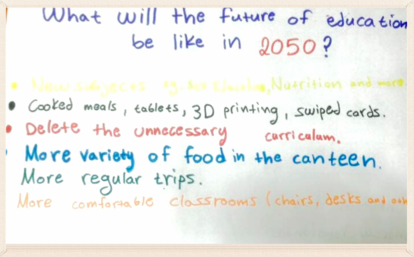 What will the future of education
be like in 2050?
New subjects eg Nutrition and more
• Cooked meals, tablets, 3D printing, swiped cards.
• Delete the unnecessary curriculum.
• More variety of food in the canteen.
More regular trips.
More comfortable classrooms (chairs, desks and